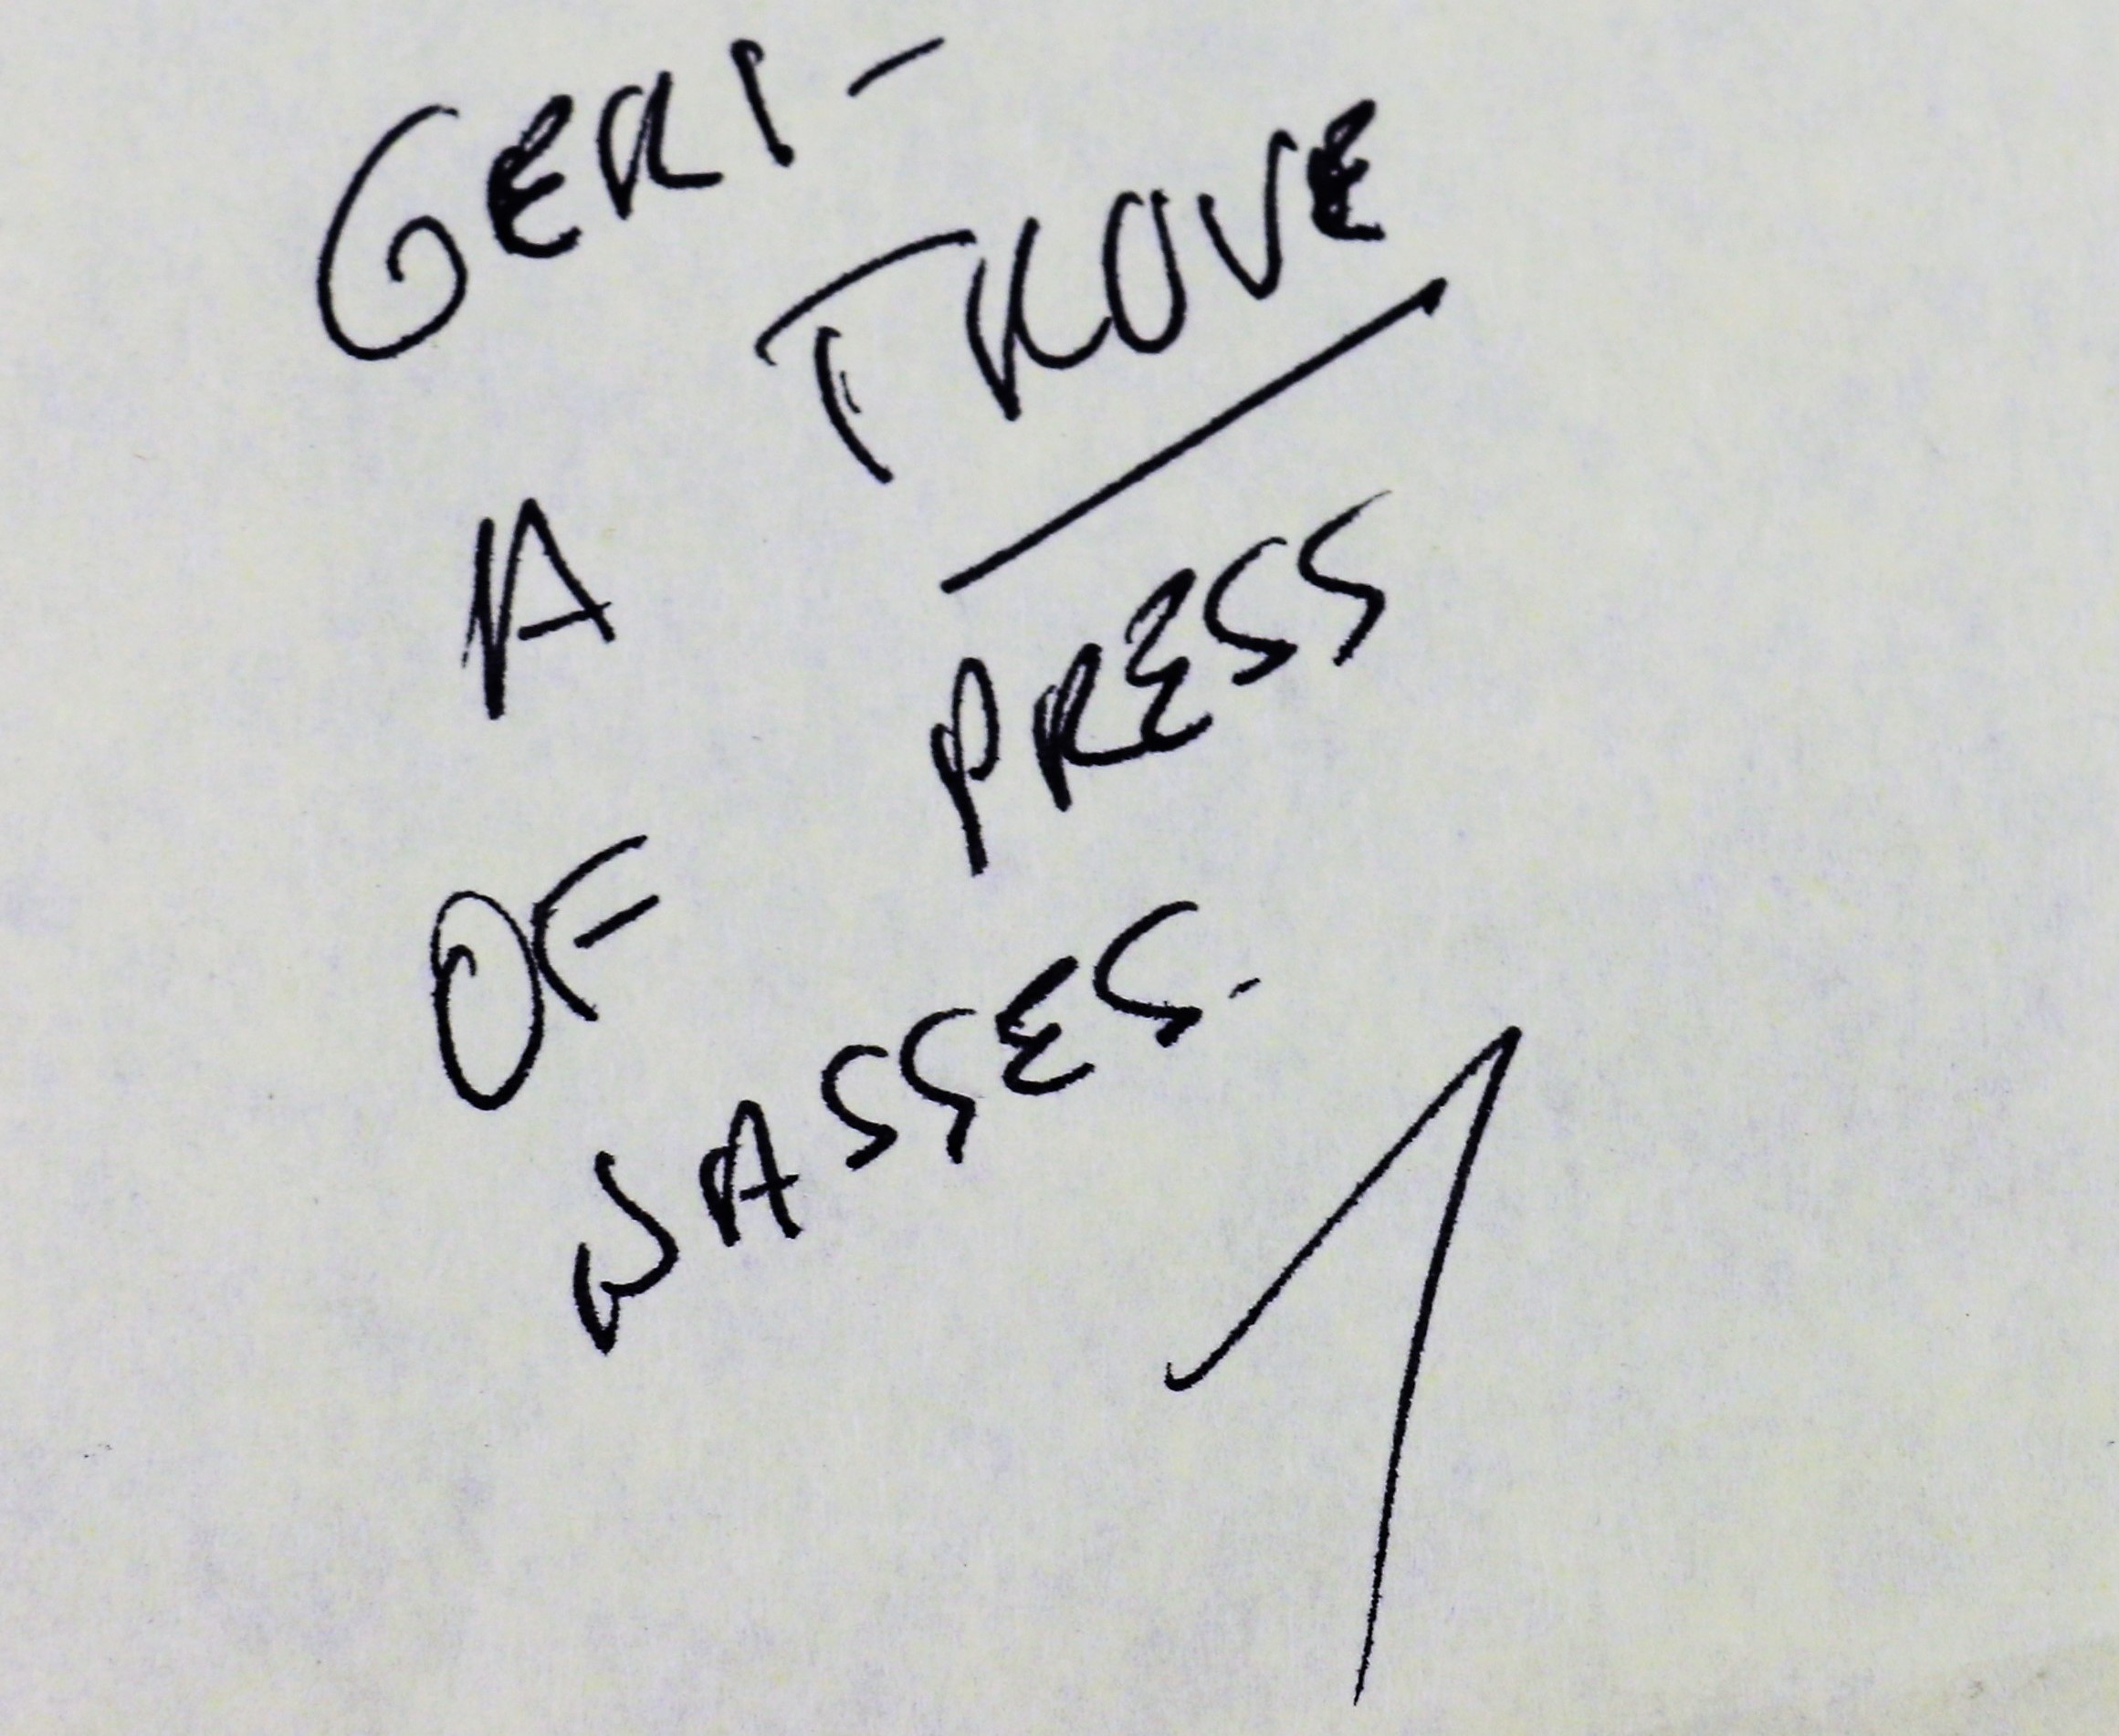 GERI -
A TROVE
OF PRESS
PASSES.